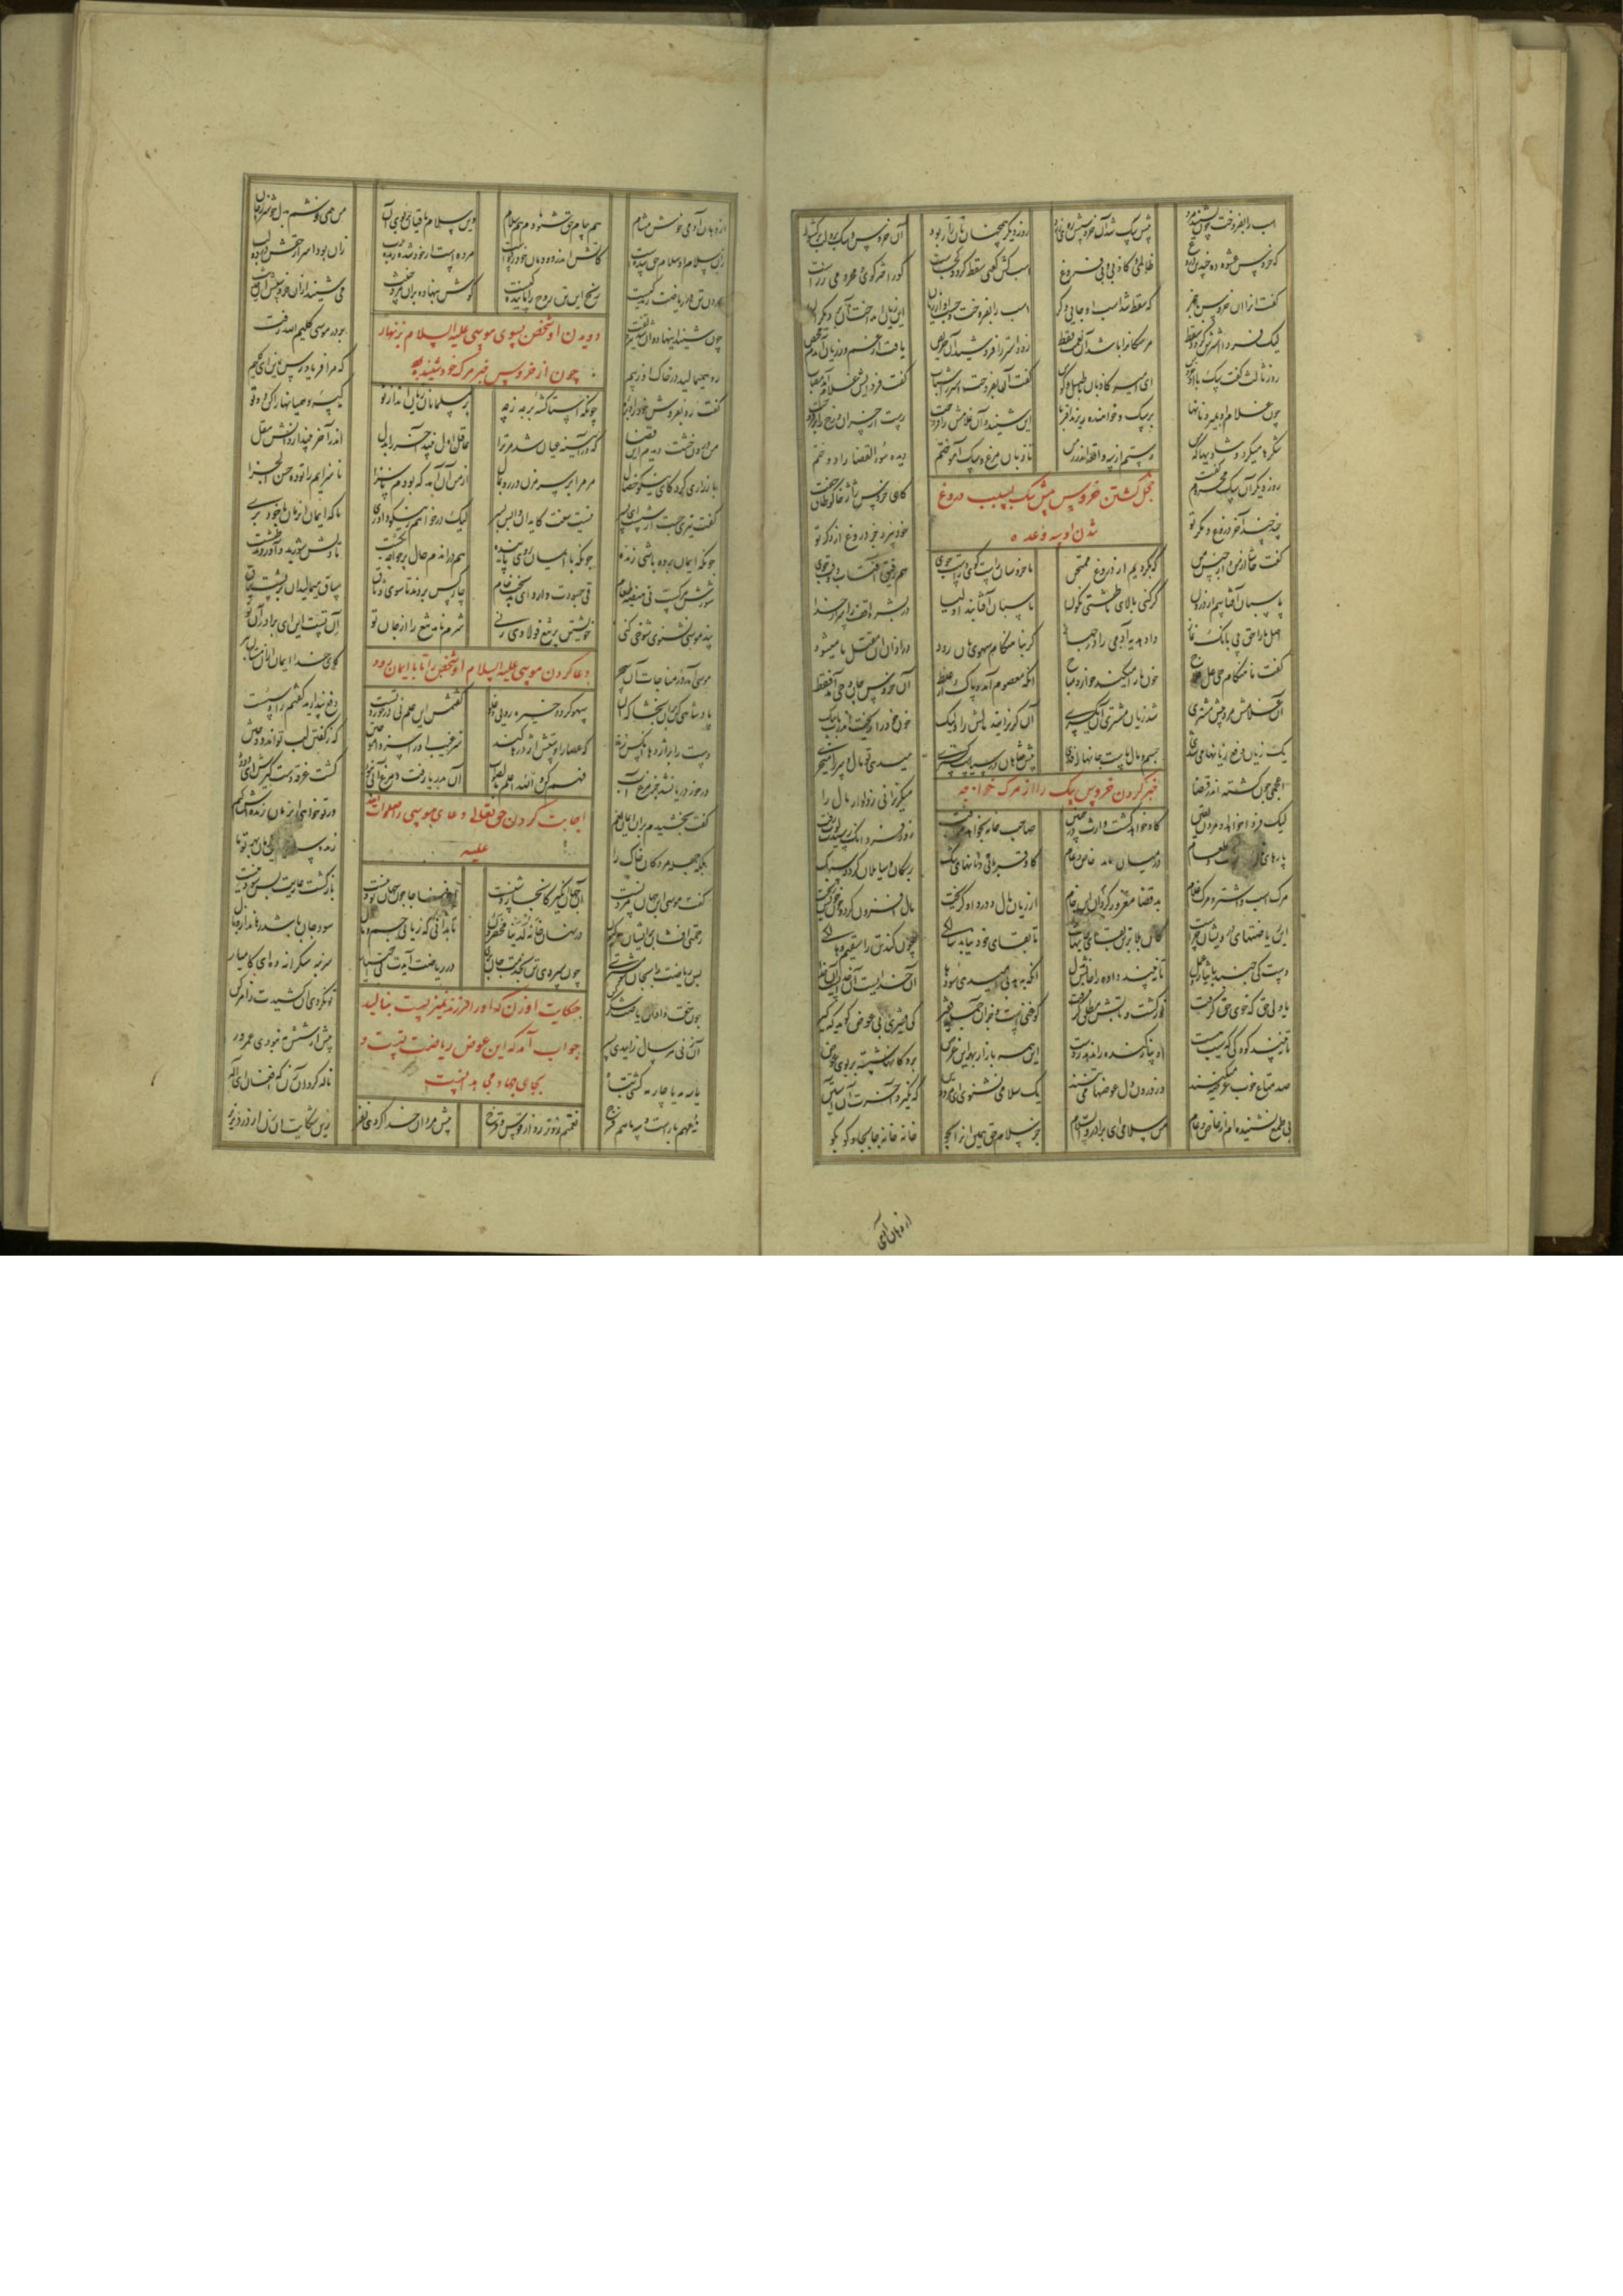 اسب را بفروخت چون بشنید مرد پیش سگ شد آن خروسش روی زرد روز دیگر همچنان نان را ربود آن خروس و سگ برو لب برکشود
کای خروس عشوه ده چند این دروغ ظالمی و کاذبی و بی فروغ اسب کش گفتی سقط گردد کجاست کور اختر گوی محرومی ز راست
گفت او را آن خروس با خبر که سقط شد اسب او جای دگر اسب را بفروخت و جست او از زیان آن زیان انداخت او بر دیگران
لیک فردا استرش گردد سقط مر سگان را باشد آن نعمت فقط زود استر را فروشید آن حریص یافت از غم وز زیان آن دم محیص
روز ثالث گفت سگ با آن خروس ای امیر کاذبان با طبل و کوس گفت او بفروخت استر را شتاب گفت فردایش غلام آمد مصاب
چون غلام او بمیرد نانها بر سگ و خواهنده ریزند اقربا این شنید و آن غلامش را فروخت رست از خسران و رخ را برفروخت
شکرها میکرد و شادیها که من رستم از سه واقعه اندر زمن تا زبان مرغ و سگ آموختم دیده سوء القضا را دوختم
روز دیگر آن سگ محروم گفت کای خروس ژاژخا کو طاق و جفت
خجل گشتن خروس پیش سگ بسبب دروغ
شدن او به وعده
چند چند آخر دروغ و مکر تو خود نپرد جز دروغ از وکر تو
گفت حاشا از من و از جنس من که بگردیم از دروغ ممتحن ما خروسان راست گوی هم رقیب آفتاب و وقت جوی
پاسبان آفتابیم از درون گر کنی بالای ما طشتی نگون پاسبان آفتابند اولیا در بشر واقف ز اسرار خدا
اصل ما را حق پی بانگ نماز داد هدیه آدمی را در جهاز گر بناهنگام سهوی مان رود در اذان آن مقتل ما میشود
گفت ناهنگام حی علی فلاح خون ما را میکند خوار و مباح آنکه معصوم آمد و پاک از غلط آن خروس جان وحی آمد فقط
آن غلامش مرد پیش مشتری شد زیان مشتری آن یکسری آن گریزانید مالش را ولیک خون خود را ریخت اندر یاب نیک
یک زیان دفع زیانها می شدی جسم و مال ماست جانها را فدی پیش شاهان در سیاست گستری میدهی تو مال و سر را میخری
اعجمی چون گشته اندر قضا میگریزانی ز داور مال را
خبر کردن خروس سگ را از مرگ خواجه
لیک فردا خواهد او مردن یقین گاو خواهد کشت وارث در حنین صاحب خانه بخواهد مرد رفت روز فردا نک رسیدت لوت زفت
پارهای نان و طعام در میان خاص و عام گاو قربانی و نانهای تنک بر سگان و سایلان سبک
مرگ اسب و استر و مرگ غلام بد قضا گردان این مغرور خام از زیان مال و درد او گریخت مال افزون کرد و خون خویش ریخت
این ریاضتهای درویشان چراست کان بلا بر تن بقای جانهاست تا بقای خود نیابد سالکی چون کند تن را سقیم و هالکی
دست کی جنبد بایثار و عمل تا نبیند داده را جانش بدل آنکه بدهد بی امید سودها آن خدایست آن خدایست آن خدا
یا ولی حق که خوی حق گرفت نور گشت و تابش مطلق گرفت کو غنی است و جز او جمله فقیر کی فقیری بی عوض گوید که گیر
تا نبیند کودکی که سیب هست او پیاز گنده را ندهد ز دست این همه بازار بهر این غرض بر دکانها شسته بر بوی عوض
صد متاع خوب عرضه میکنند وندرون دل عوضها می تنند یک سلامی نشنوی ای مرد دین که نگیرد آخرت آن آستین
بی طمع نشنیده ام از خاص و عام من سلامی ای برادر والسلام جز سلام حق هین آنرا بجو خانه خانه جا بجا و کو بکو
از دهان آدمی
از دهان آدمی خوش مشام هم پیام حق شنودم هم سلام وین سلام باقیان بر بوی آن من همی نوشم بدل خوشتر ز جان
زان سلام او سلام حق شده است کاتش اندر دودمان خود زده است مرده است از خود شده زنده برب زان بود اسرار حقش در دو لب
مردن تن در ریاضت زندگیست رنج این تن روح را پایندگیست گوش بنهاده بد آن مرد خبیث می شنید او از خروسش آن حدیث
دویدن او شخص بسوی موسی علیه السلام بزنهار
چون از خروس خبر مرگ خود شنید
چون شنید اینها دوان شد تیز و تفت بر در موسی کلیم الله رفت
رو همی مالید در خاک او ز بیم که مرا فریاد رس زین ای کلیم
گفت رو بفروش خود را و بره چونکه استا گشته بر جه ز چه بر مسلمانان زیان انداز تو کیسه و همیانها را کن دو تو
من درون خشت دیدم این قضا که در آیینه عیان شد مر ترا عاقل اول بیند آخر را بدل اندر آخر بیند از دانش مقل
باز زاری کرد کای نیکو خصال مر مرا در سر مزن در رو ممال از من آن آمد که بودم ناسزا ناسزایم را تو ده حسن الجزا
گفت تیری جست از شست ای پسر نیست سنت کاید آن واپس بسر لیک درخواهم ز نیکو داوری تا که ایمان آن زمان با خود بری
چونکه ایمان برده باشی زنده چونکه با ایمان روی پاینده هم در آن دم حال بر خواجه بگشت تا دلش شورید و آوردند طشت
شورش مرگست نی هیضه طعام قی چه سودت دارد ای بدبخت خام چار کس بردند تا سوی وثاق ساق میمالید او بر پشت ساق
پند موسی نشنوی شوخی کنی خویشتن بر تیغ فولادی زنی شرم ناید تیغ را از جان تو آن تست این ای برادر آن تو
دعا کردن موسی علیه السلام او شخص را تا با ایمان رود
موسی آمد در مناجات آن سحر کای خدا ایمان ازو مستان مبر
پادشاهی کن برو بخشا که او سهو کرد و خیره رویی و غلو گفتمش این علم نی درخورد تست دفع پندارید گفتم را و سست
دست را بر اژدها آنکس زند که عصا را دستش اژدرها کند سر غیب آنرا سزد آموختن که ز گفتن لب تواند دوختن
درخور دریا نشد جز مرغ آب فهم کن والله اعلم بالصواب آن بدریا رفت و مرغابی نبود گشت غرقه دست گیرش ای ودود
اجابت کردن حق تعالی دعای موسی را صلوات الله
علیه
گفت بخشیدم بدو ایمان نعم ور تو خواهی این زمان زنده ش کنم
بلکه جمله مردگان خاک را زنده
گفت موسی این جهان مردنست آن جهان انگیز کانجا روشنست این فنا جا چون جهان بود نیست بازگشت عاریت بس سود نیست
رحمتی افشان بر ایشان هم کنون در نهان خانه لدینا محضرون تا بدانی که زیان جسم و مال سود جان باشد رهاند از وبال
پس ریاضت را بجان شو مشتری چون سپردی تن بخدمت جان بری ور ریاضت آیدت بی اختیار سر بنه شکرانه ده ای کامیار
چون حقت داد آن ریاضت شکر کن تو نکردی او کشیدت ز امر کن
حکایت او زن که او را فرزند نمیزیست بنالید
جواب آمد که این عوض ریاضت تست و
بجای جهاد مجاهدانست
آن زنی هر سال زاییدی پسر بیش از شش مه نبودی عمرور
یا سه مه یا چار مه گشتی تباه ناله کرد آن زن که افغان ای اله
نه مهم بارست و سه ماهم فرح نعمتم زوتر رو از قوس قزح پیش مردان خدا کردی نفیر زین شکایت آن زن از درد نذیر